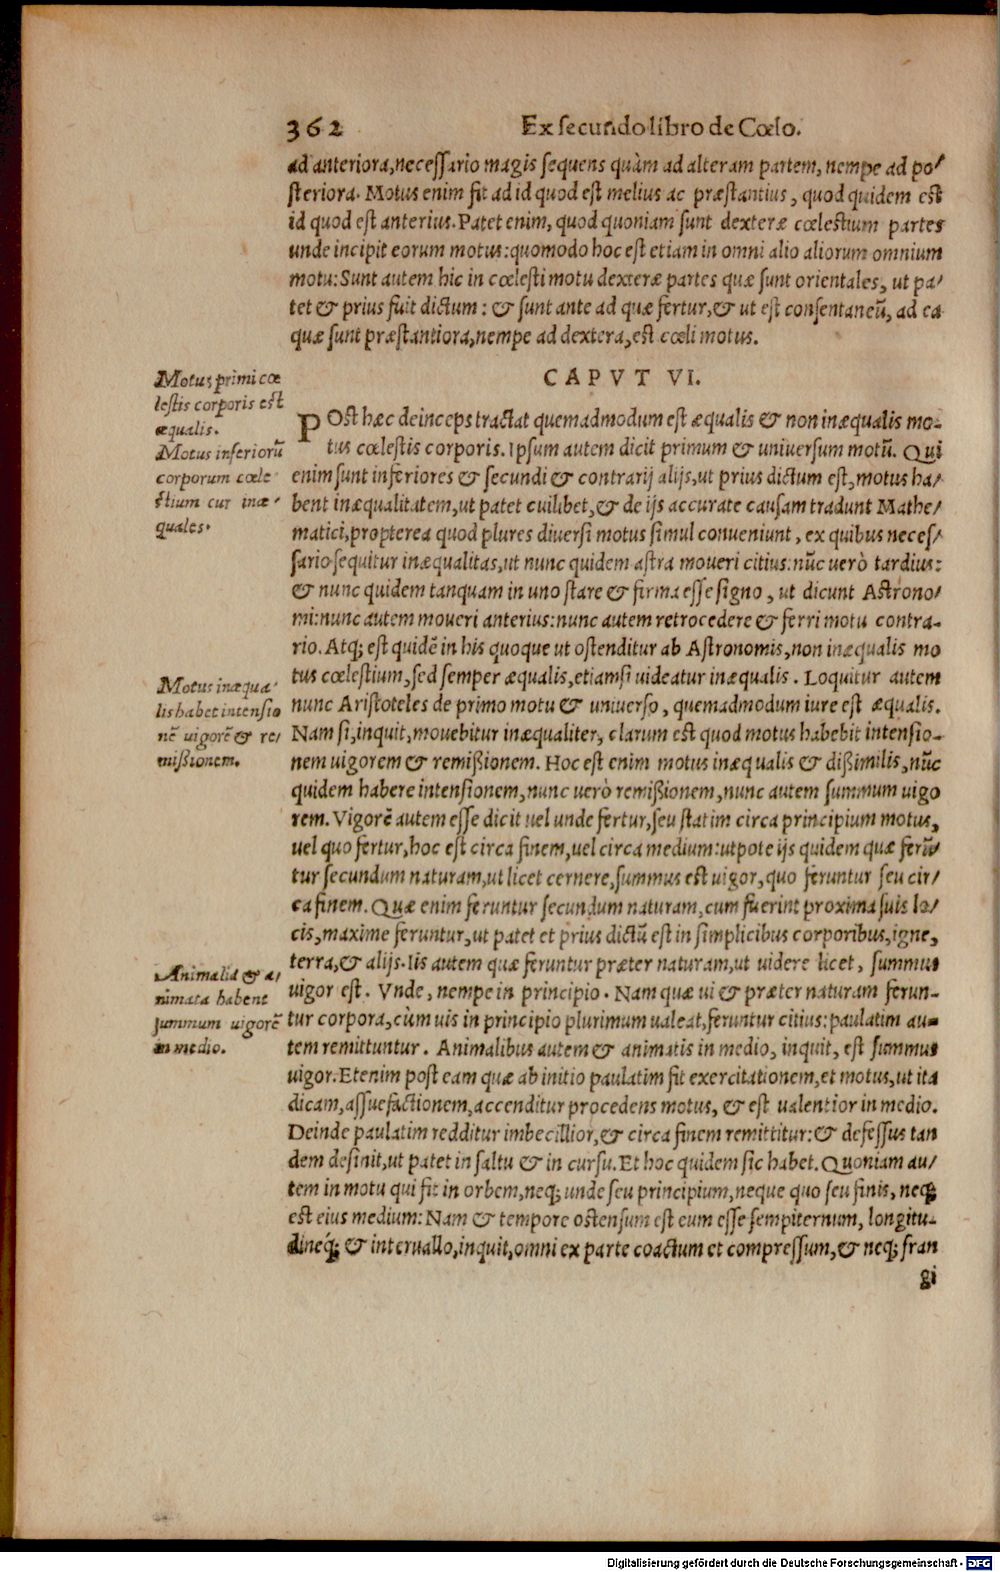 362 Ex secundo libro de Cœlo.
ad anteriora, necessario magis sequens quàm ad alteram partem, nempe ad po/
steriora. Motus enim fit ad id quod est melius ac præstantius, quod quidem est
id quod est anterius. Patet enim, quod quoniam sunt dexteræ cœlestium partes
unde incipit eorum motus: quomodo hoc est etiam in omni alio aliorum omnium
motu: Sunt autem hic in cœlesti motu dexteræ partes quæ sunt orientales, ut pa/
tet & prius fuit dictum: & sunt ante ad quæ fertur, & ut est consentaneũ, ad ea
quæ sunt præstantiora, nempe ad dextera, est cœli motus.
CAPVT VI.
Motus primi cœ
lestis corporis est
æqualis.
Motus inferiorũ
corporum cœle
stium cur inæ/
quales.
POst hæc deinceps tractat quemadmodum est æqualis & non inæqualis mo-
tus cœlestis corporis. Ipsum autem dicit primum & universum motũ. Qui
enim sunt inferiores & secundi & contrarij alijs, ut prius dictum est, motus ha/
bent inæqualitatem, ut patet cuilibet, & de ijs accurate causam tradunt Mathe/
matici, propterea quod plures diversi motus simul conveniunt, ex quibus neces/
sario sequitur inæqualitas, ut nunc quidem astra moveri citius: nũc verò tardius:
& nunc quidem tanquam in uno stare & firma esse signo, ut dicunt Astrono/
mi: nunc autem moveri anterius: nunc autem retrocedere & ferri motu contra-
rio. Atq; est quidẽ in his quoque ut ostenditur ab Astronomis, non inæqualis mo
tus cœlestium, sed semper æqualis, etiamsi uideatur inæqualis. Loquitur autem
nunc Aristoteles de primo motu & universo, quemadmodum iure est æqualis.
Nam si, inquit, mouebitur inæqualiter, clarum est quod motus habebit intensio-
nem uigorem & remißionem. Hoc est enim motus inæqualis & dißimilis, nũc
quidem habere intensionem, nunc verò remißionem, nunc autem summum uigo
rem. Vigorẽ autem esse dicit uel unde fertur, seu statim circa principium motus,
uel quo fertur, hoc est circa finem, vel circa medium: utpote ijs quidem quæ ferũ/
tur secundum naturam, ut licet cernere, summus est uigor, quo feruntur seu cir/
ca finem. Quæ enim feruntur secundum naturam, cum fuerint proxima suis lo/
cis, maxime feruntur, ut patet et prius dictũ est in simplicibus corporibus, igne,
terra, & alijs. Iis autem quæ feruntur præter naturam, ut uidere licet, summus
uigor est. Vnde, nempe in principio. Nam quæ ui & præter naturam ferun-
tur corpora, cùm uis in principio plurimum ualeat, feruntur citius: paulatim au-
tem remittuntur. Animalibus autem & animatis in medio, inquit, est summus
uigor. Etenim post eam quæ ab initio paulatim fit exercitationem, et motus, ut ita
dicam, assuefactionem, accenditur procedens motus, & est ualentior in medio.
Deinde paulatim redditur imbecillior, & circa finem remittitur: & defessus tan
dem desinit, ut patet in saltu & in cursu. Et hoc quidem sic habet. Quoniam au/
tem in motu qui fit in orbem, neq; unde seu principium, neque quo seu finis, neq;
est eius medium: Nam & tempore ostensum est eum esse sempiternum, longitu-
dineq́; & intervallo, inquit, omni ex parte coactum et compressum, & neq; fran
gi
Motus inæqua/
lis habet intensio
nẽ uigorẽ & re/
mißionem.
Animalia & a/
nimata habent
summum uigorẽ
in medio.
Digitalisierung gefördert durch die Deutsche Forschungsgemeinschaft - DFG